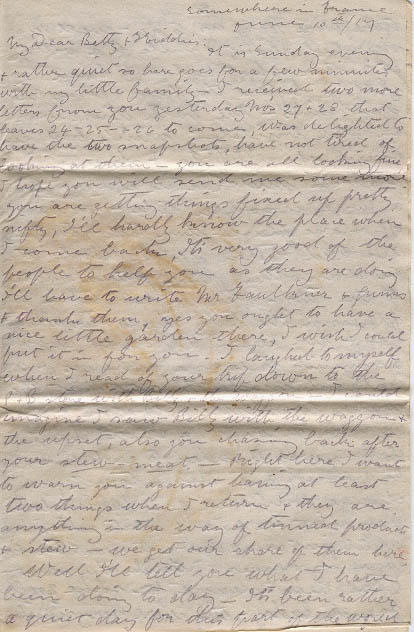 Somewhere in France
June 10th/17
My dear Betty & Kiddies:
It is Sunday evening
& rather quiet so here goes for a few minutes
with my little family – I received two more
letters from you yesterday Nos 27 & 28 that
leaves 24-25- & 26 to come, was delighted to
have the two snapshots, have not tired of
looking at them – you are all looking fine
I hope you will send me some more
you are getting things fixed up pretty
nifty, I'll hardly know the place when
I come back, It's very good of the
people to help you as they are doing
I'll have to write Mr Faulkner &
& thank them, yes you ought to have a
nice little garden there, I wish I could
put it in for you. I laughed to myself
when I read of your trip down to the
store with Billy I could
imagine I saw Billy with the waggon &
the upset, also you chasing back after
your stew-meat, – Right here I want
to warn you against having at least
two things when I return & they are
anything in the way of tinned products
& stew – we get our share of them here
Well I'll tell you what I have
been doing to day – It's been rather
a quiet day for this part of the world